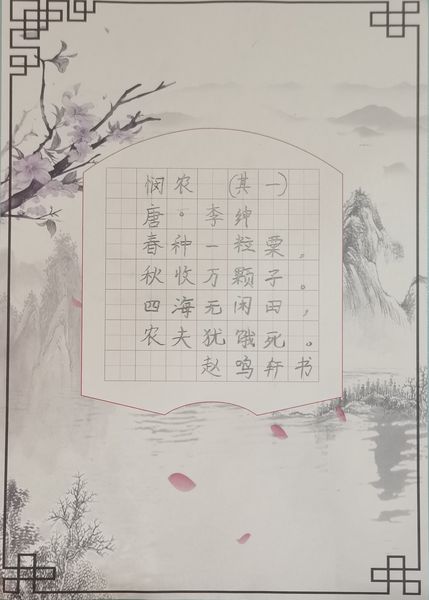 悯农 (其一)
唐。李绅
春种一粒粟,
秋收万颗子。
四海无闲田,
农夫犹饿死。
赵鸣轩书